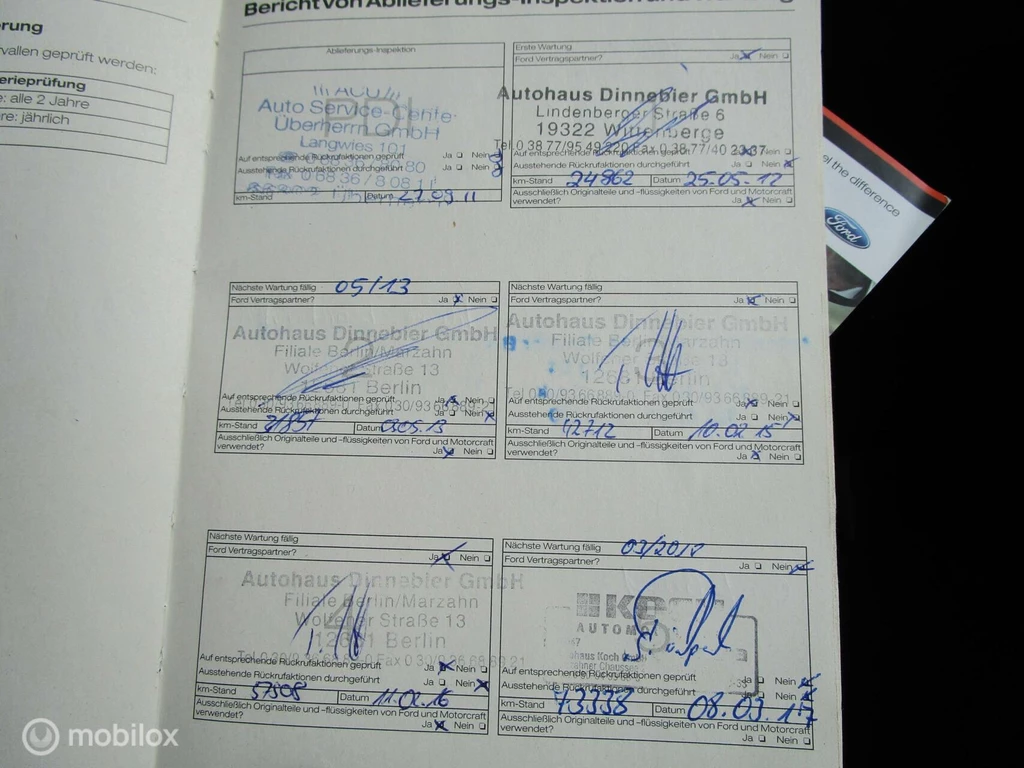 Bericht von Ablieferungs-Inspektion und Wartung
erung
vallen geprüft werden:
erieprüfung
e: alle 2 Jahre
ere: jährlich
Ablieferungs-Inspektion
Auto Service-Center
Überherrn GmbH
Langwies 101
Auf entsprechende Rückrufaktionen geprüft Ja Nein
Ausstehende Rückrufaktionen durchgeführt Ja Nein
km-Stand Datum 27 09 11
Erste Wartung
Ford Vertragspartner? Ja Nein
Autohaus Dinnebier GmbH
Lindenberger Straße 6
19322 Wittenberge
Auf entsprechende Rückrufaktionen geprüft Ja Nein
Ausstehende Rückrufaktionen durchgeführt Ja Nein
km-Stand 24862 Datum 25.05.12
Ausschließlich Originalteile und -flüssigkeiten von Ford und Motorcraft
verwendet? Ja Nein
Nächste Wartung fällig 05/13
Ford Vertragspartner? Ja Nein
Autohaus Dinnebier GmbH
Filiale Berlin/Marzahn
Wolfener Straße 13
12681 Berlin
Auf entsprechende Rückrufaktionen geprüft Ja Nein
Ausstehende Rückrufaktionen durchgeführt Ja Nein
km-Stand Datum
Ausschließlich Originalteile und -flüssigkeiten von Ford und Motorcraft
verwendet? Ja Nein
Nächste Wartung fällig
Ford Vertragspartner? Ja Nein
Autohaus Dinnebier GmbH
Filiale Berlin/Marzahn
Wolfener Straße 13
12681 Berlin
Tel 030/93 66 889-0 Fax 030/93 66 889-21
Auf entsprechende Rückrufaktionen geprüft Ja Nein
Ausstehende Rückrufaktionen durchgeführt Ja Nein
km-Stand 42712 Datum 10.02.15
Ausschließlich Originalteile und -flüssigkeiten von Ford und Motorcraft
verwendet? Ja Nein
Nächste Wartung fällig
Ford Vertragspartner? Ja Nein
Autohaus Dinnebier GmbH
Filiale Berlin/Marzahn
Wolfener Straße 13
12681 Berlin
Auf entsprechende Rückrufaktionen geprüft Ja Nein
Ausstehende Rückrufaktionen durchgeführt Ja Nein
km-Stand 57508 Datum 11.02.16
Ausschließlich Originalteile und -flüssigkeiten von Ford und Motorcraft
verwendet? Ja Nein
Nächste Wartung fällig
Ford Vertragspartner? Ja Nein
Auf entsprechende Rückrufaktionen geprüft Ja Nein
Ausstehende Rückrufaktionen durchgeführt Ja Nein
km-Stand 73338 Datum 08.03.17
Ausschließlich Originalteile und -flüssigkeiten von Ford und Motorcraft
verwendet? Ja Nein
the difference
Ford
mobilox